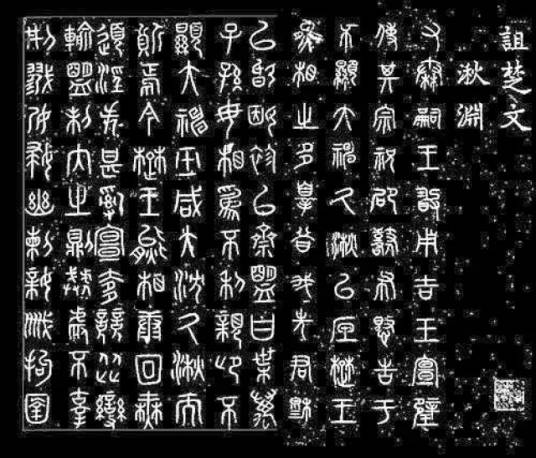 詛楚文
湫淵
又秦嗣王敢用吉玉宣璧
使其宗祝卲鼛布愍告于
不顯大神久湫以底楚王
熊相之多辠昔我先君穆
以婚姻袗以齊盟曰葉萬
子孫毋相為不利親卬不
顯大神巫咸大沈久湫而
質焉今楚王熊相康回無
道淫失甚亂宣奓競從變
輸盟制內之則暴虐不辜
刑戮孕婦幽刺親戚拘圉